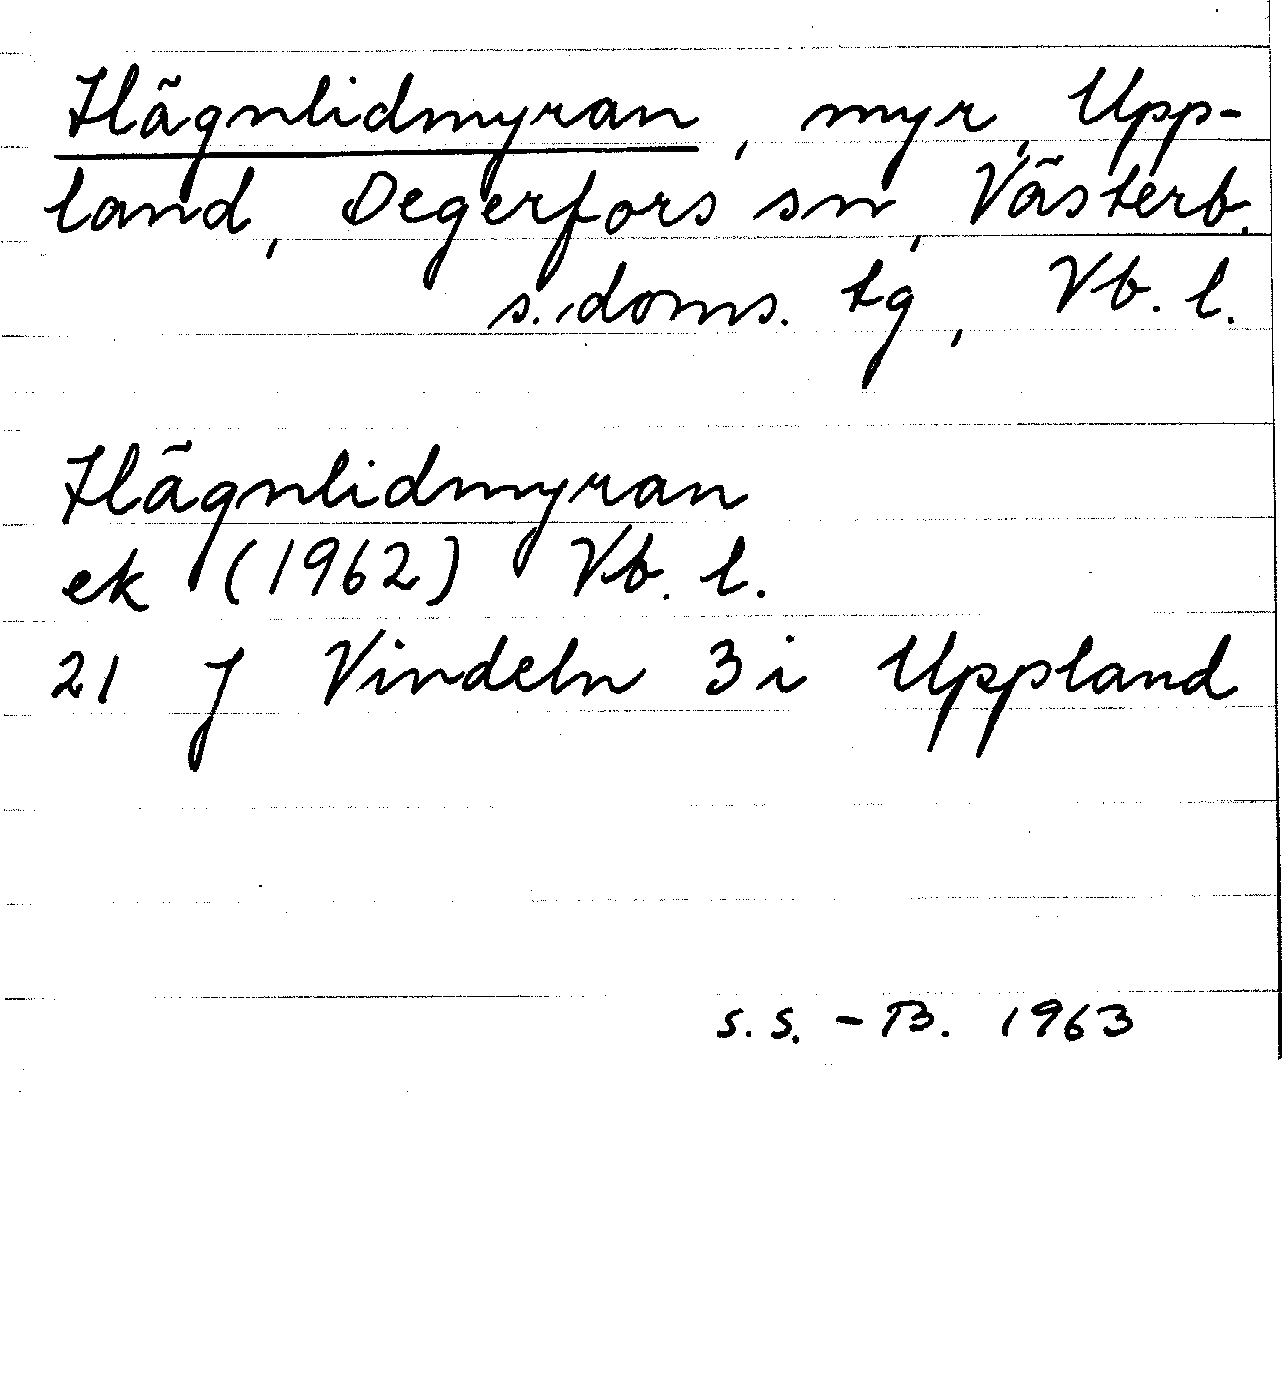 Hägnlidmyran, myr, Upp-
land, Degerfors sn, Västerb.
s. doms. tg, Vb. l.
Hägnlidmyran
ek (1962) Vb. l.
21 J Vindeln 3 i Uppland
S.S. - B. 1963